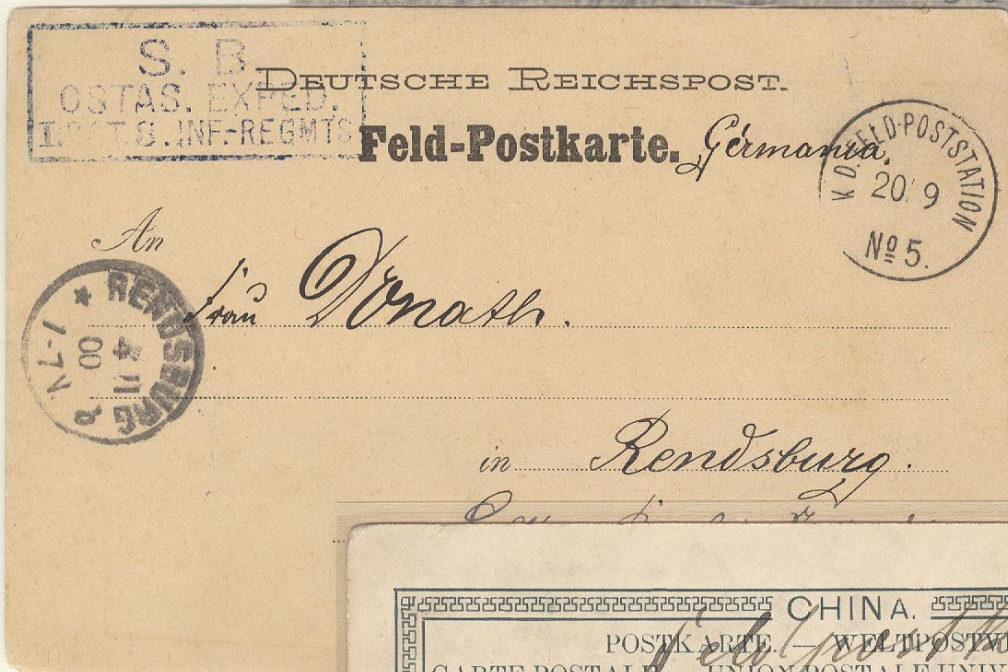 S. B.
OSTAS. EXPED.
INF-REGMTS
DEUTSCHE REICHSPOST.
Feld-Postkarte. Germania.
K. D. FELD-POSTSTATION
20/9
No 5.
An
Frau Donath.
RENDSBURG
4 11
00
1-7N
in Rendsburg.
CHINA.
POSTKARTE. — WELTPOSTV
CARTE POSTALE UNION POSTALE UNI
Feldpost